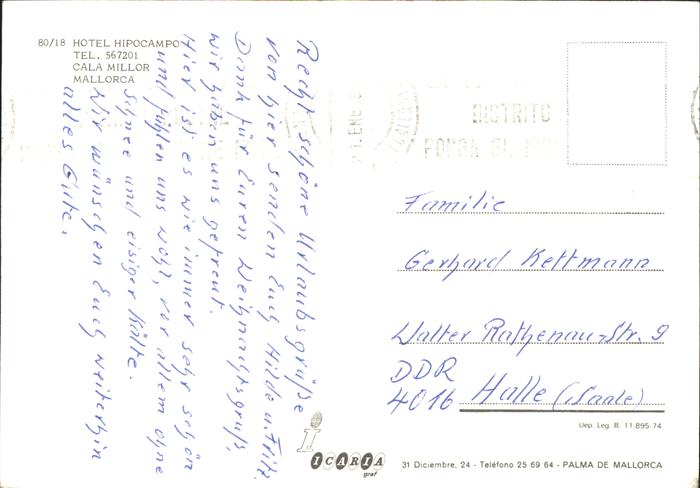 80/18 HOTEL HIPOCAMPO
TEL. 567201
CALA MILLOR
MALLORCA
Recht schöne Urlaubsgrüße
von hier senden Euch Hilde u. Fritz.
Dank für Euren Weihnachtsgruß,
wir haben uns gefreut.
Hier ist es wie immer sehr schön
und fühlen uns wohl, vor allem ohne
Schnee und eisiger Kälte.
Wir wünschen Euch weiterhin
alles Gute.
ENE
DISTRITO
PONGA EL
Familie
Gerhard Kettmann
Walter Rathenau-Str. 9
DDR
4016 Halle (Saale)
Dep. Leg. B. 11.895-74
ICARIA
graf
31 Diciembre, 24 - Teléfono 25 69 64 - PALMA DE MALLORCA